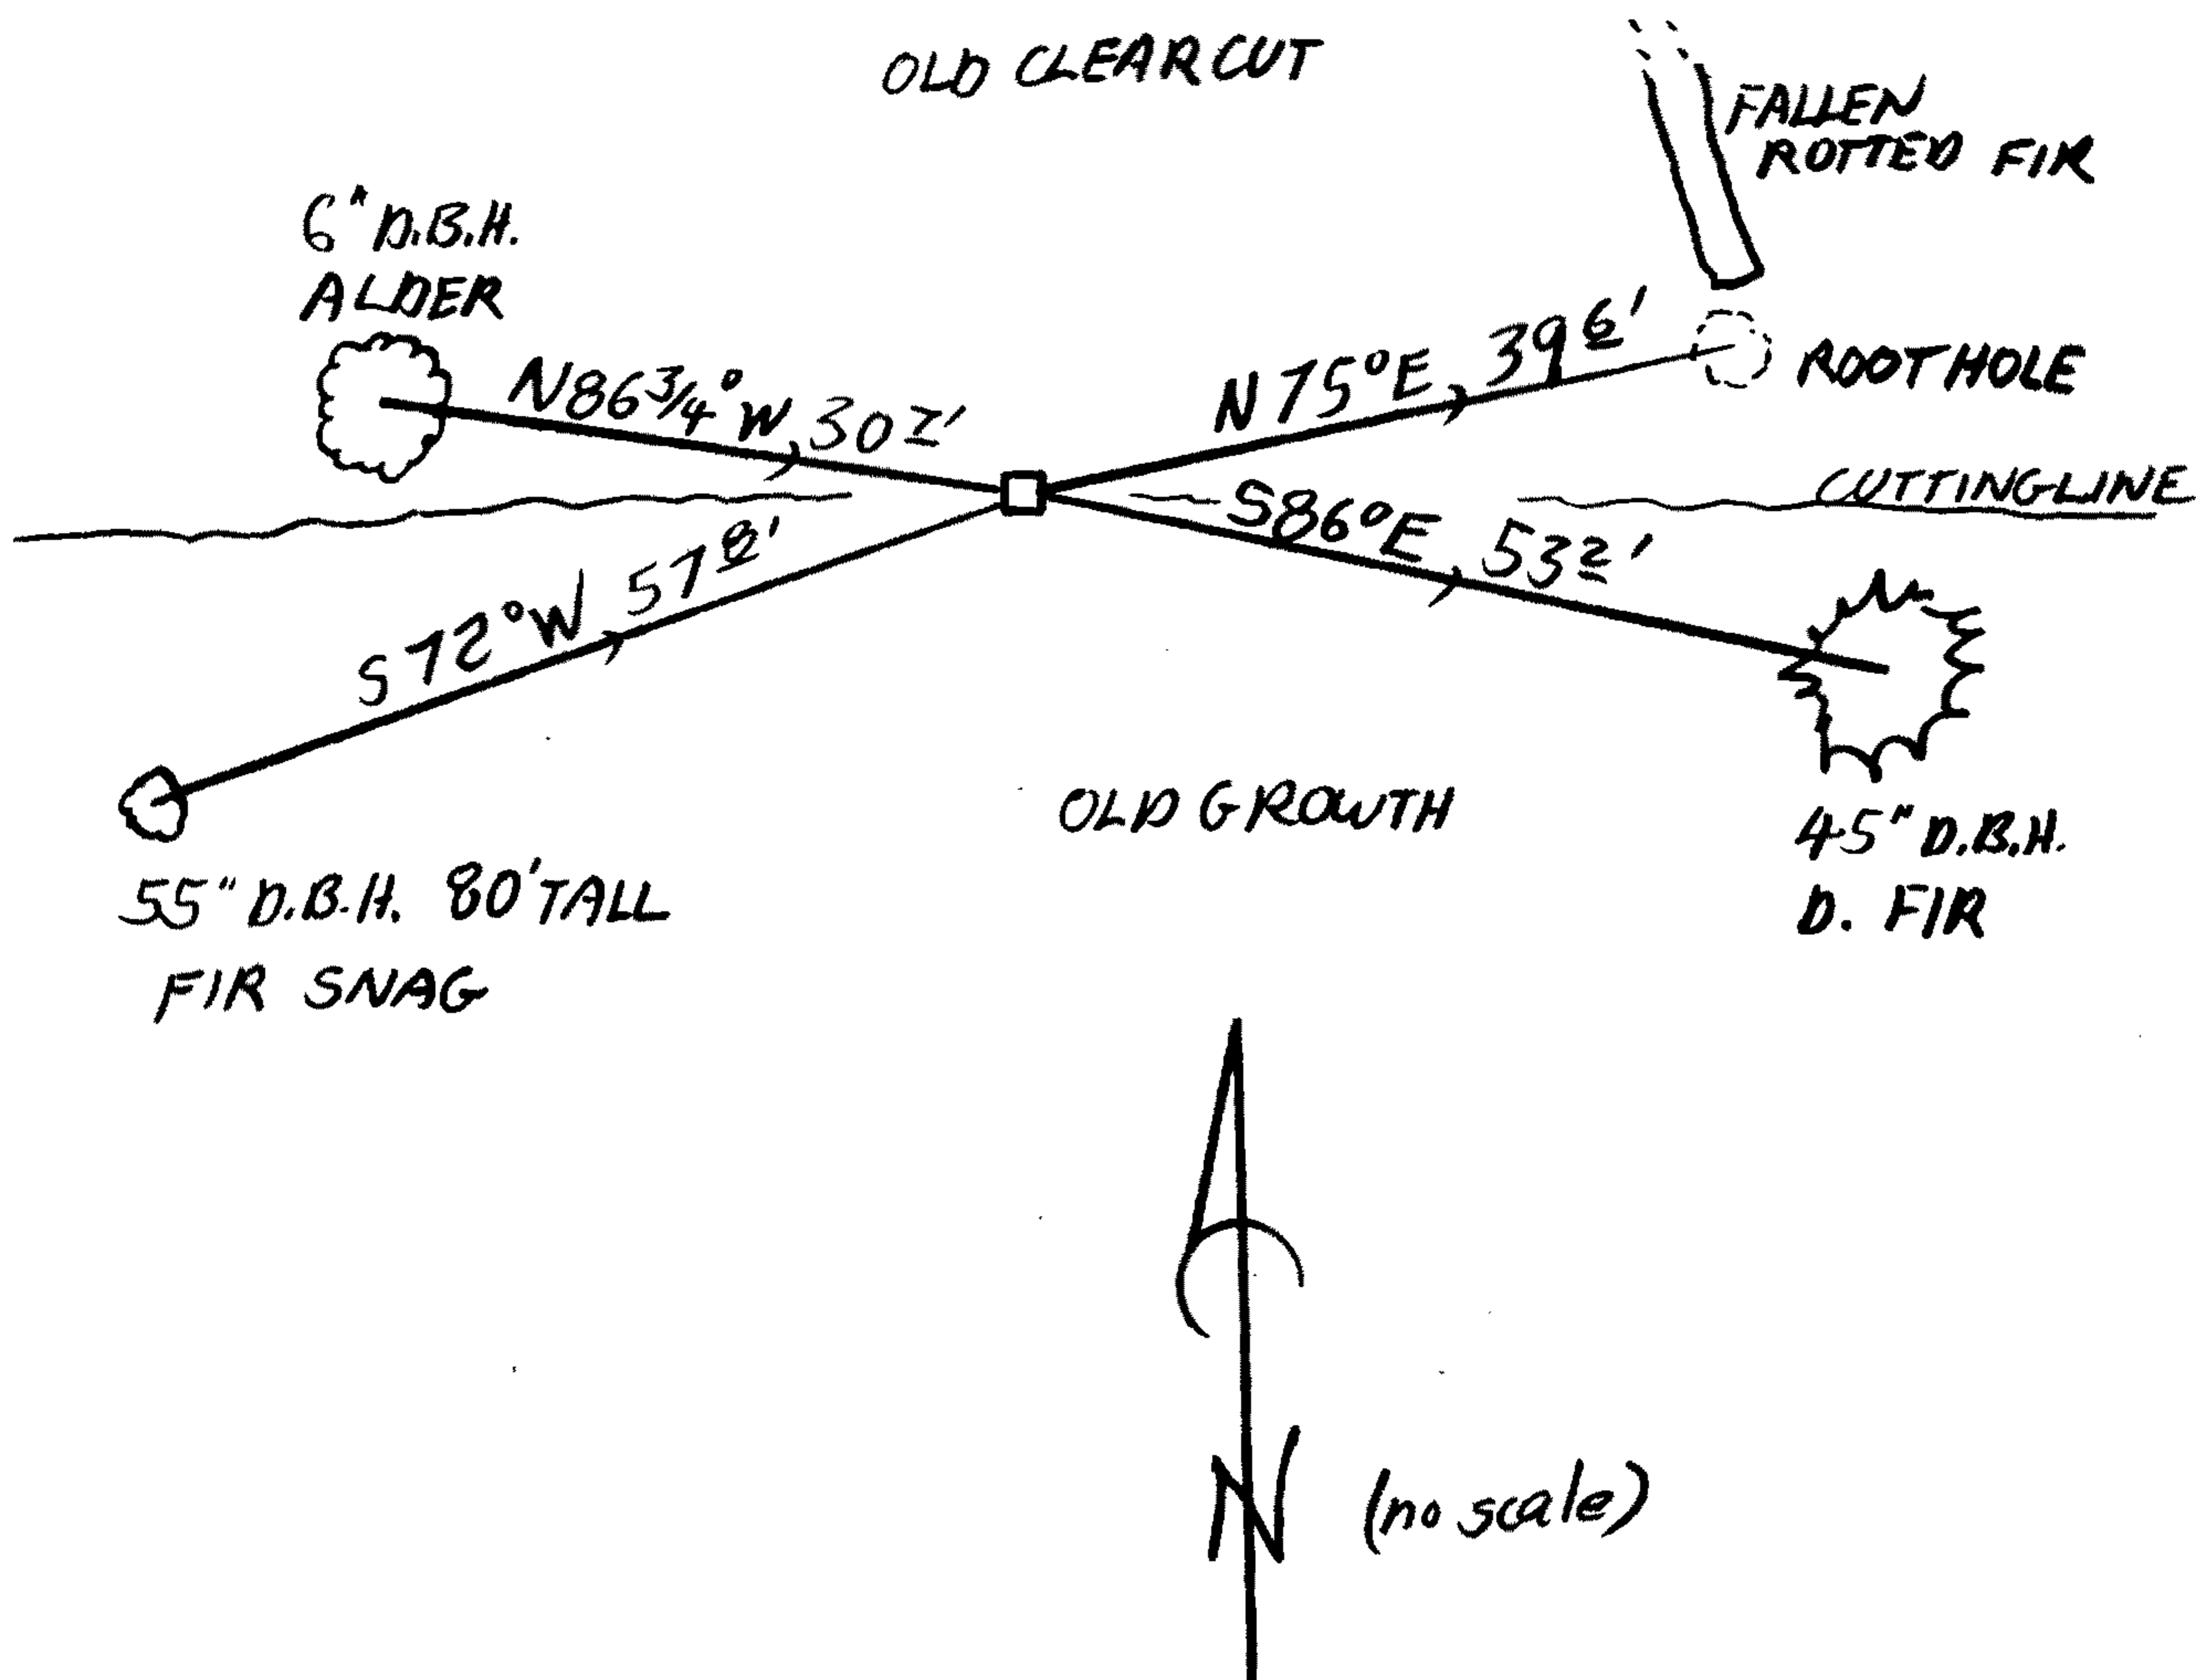 OLD CLEARCUT
FALLEN
ROTTED FIR
6" D.B.H.
ALDER
N86¾°W, 30 7'
N 75°E, 39 6'
ROOT HOLE
CUTTING LINE
S86°E, 53 2'
S 72°W 57 8'
OLD GROWTH
45" D.B.H.
D. FIR
55" D.B.H. 80' TALL
FIR SNAG
N (no scale)